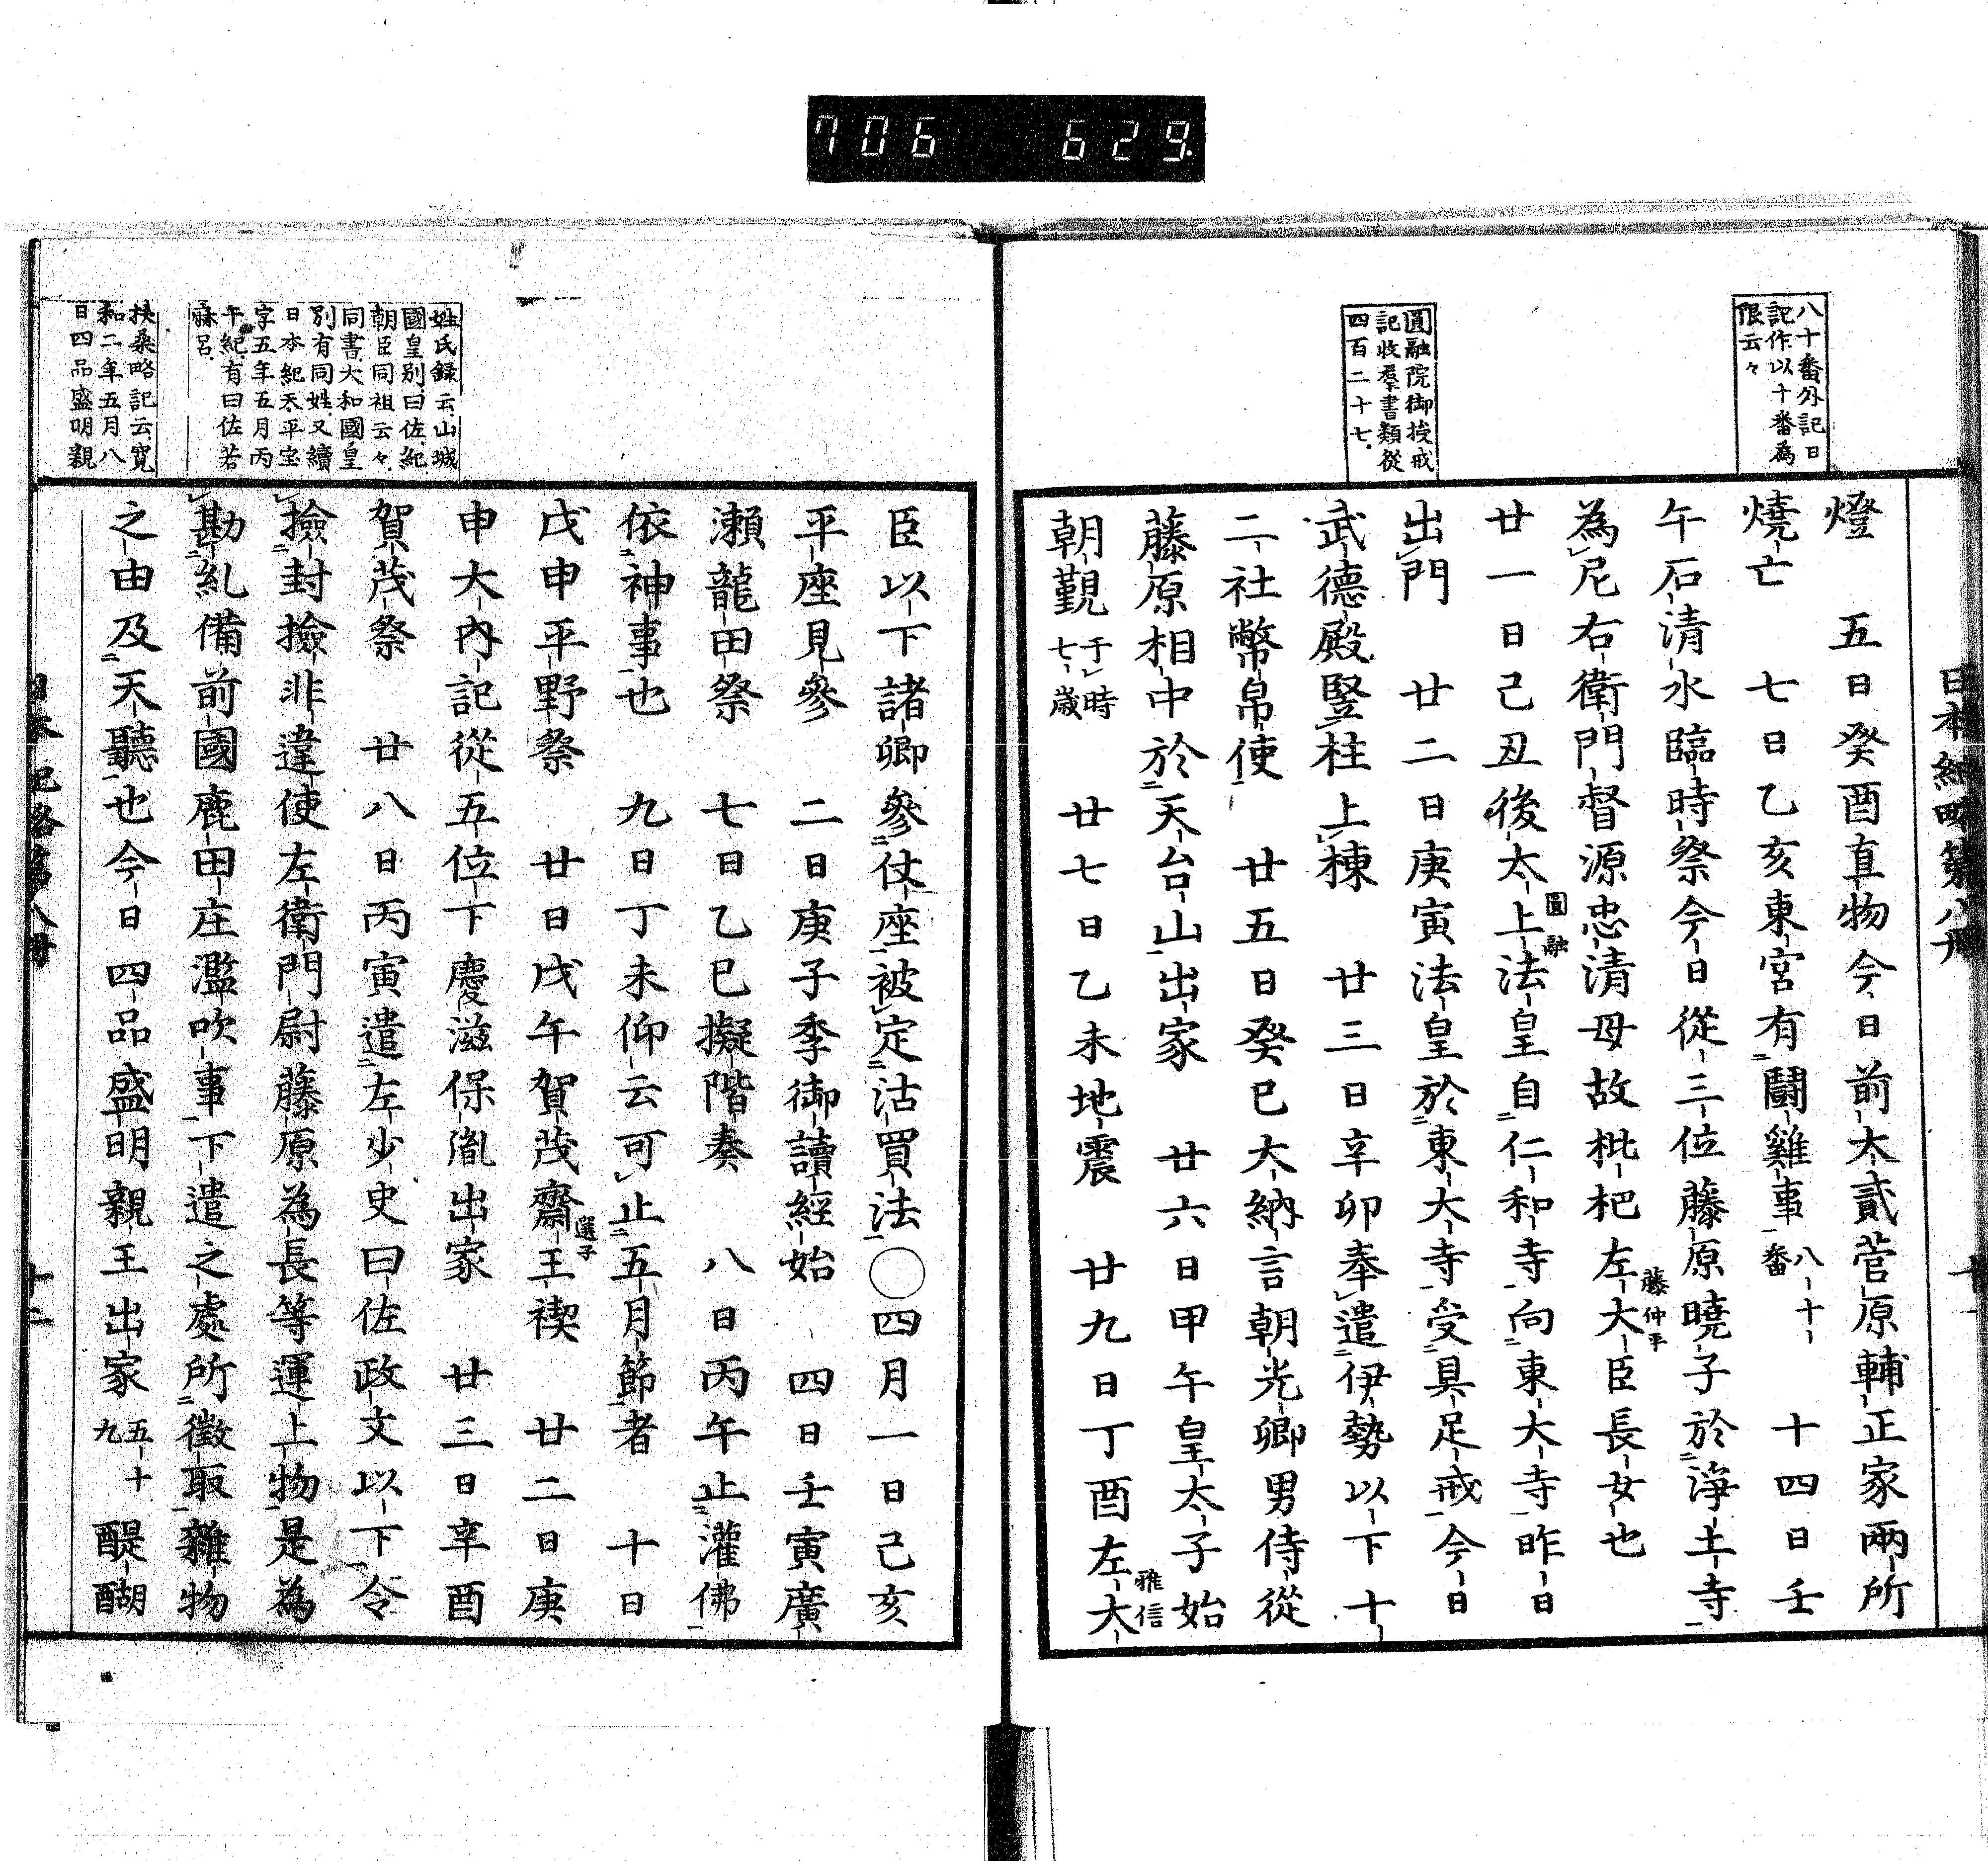 706 629
日本紀略第八冊
八十番外記日
記作以十番為
限云々
圓融院御授戒
記收羣書類從
四百二十七
燈　五日癸酉直物今日前太貳菅原輔正家兩所
燒亡　七日乙亥東宮有鬪雞事八十番　十四日壬
午石清水臨時祭今日從三位藤原曉子於淨土寺
為尼右衛門督源忠清母故枇杷左大臣長女也
藤仲平
廿一日己丑後太上法皇自仁和寺向東大寺昨日
圓融
出門　廿二日庚寅法皇於東大寺受具足戒今日
武德殿竪柱上棟　廿三日辛卯奉遣伊勢以下十
二社幣帛使　廿五日癸巳大納言朝光卿男侍從
藤原相中於天台山出家　廿六日甲午皇太子始
朝覲于時七歲　廿七日乙未地震　廿九日丁酉左大
雅信
姓氏録云山城
國皇别曰佐紀
朝臣同祖云々
同書大和國皇
別有同姓又續
日本紀天平宝
字五年五月丙
午紀有曰佐若
麻呂
扶桑略記云寛
和二年五月八
日四品盛明親
臣以下諸卿參仗座被定沽買法○四月一日己亥
平座見參　二日庚子季御讀經始　四日壬寅廣
瀨龍田祭　七日乙巳擬階奏　八日丙午止灌佛
依神事也　九日丁未仰云可止五月節者　十日
戊申平野祭　廿日戊午賀茂齋王禊　廿二日庚
選子
申大內記從五位下慶滋保胤出家　廿三日辛酉
賀茂祭　廿八日丙寅遣左少史曰佐政文以下令
撿封撿非違使左衛門尉藤原為長等運上物是為
勘糺備前國鹿田庄濫吹事下遣之處所徵取雜物
之由及天聽也今日四品盛明親王出家五十九　醍醐
日本紀略第八冊　十二